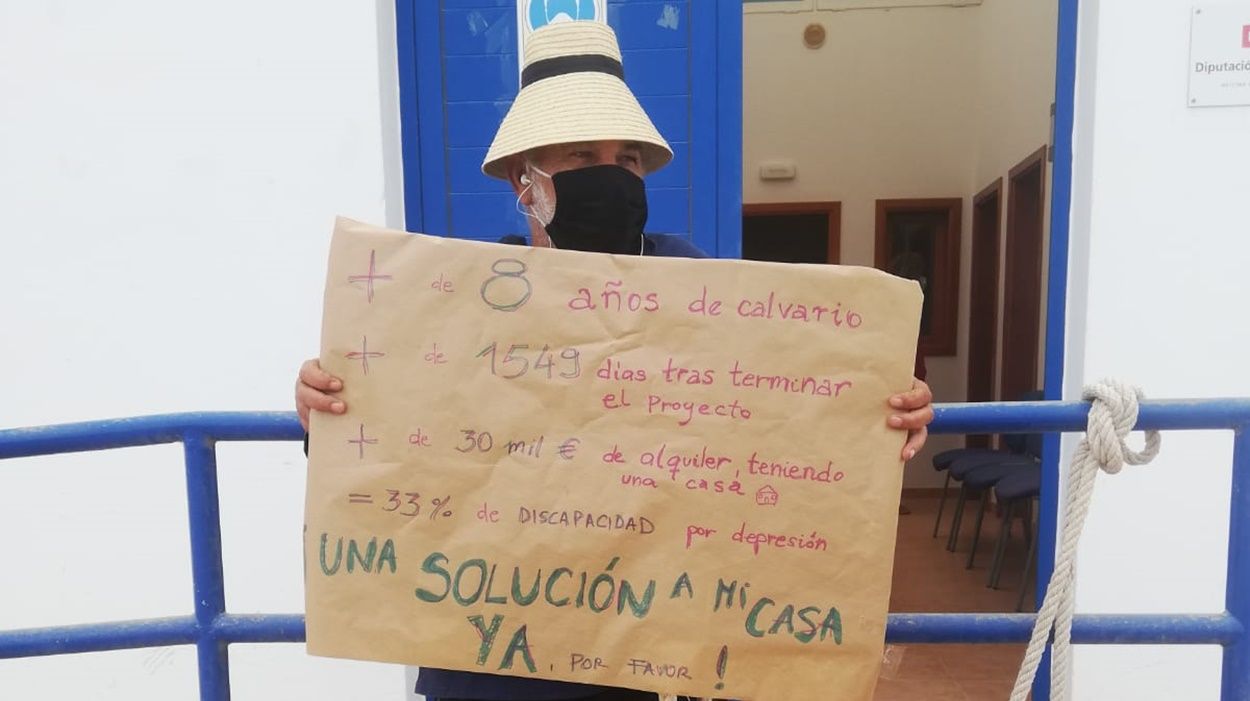 + de 8 años de calvario
+ de 1549 días tras terminar
el proyecto
+ de 30 mil € de alquiler, teniendo
una casa
= 33% de DISCAPACIDAD por depresión
¡UNA SOLUCIÓN A MI CASA
YA, POR FAVOR!
Diputació